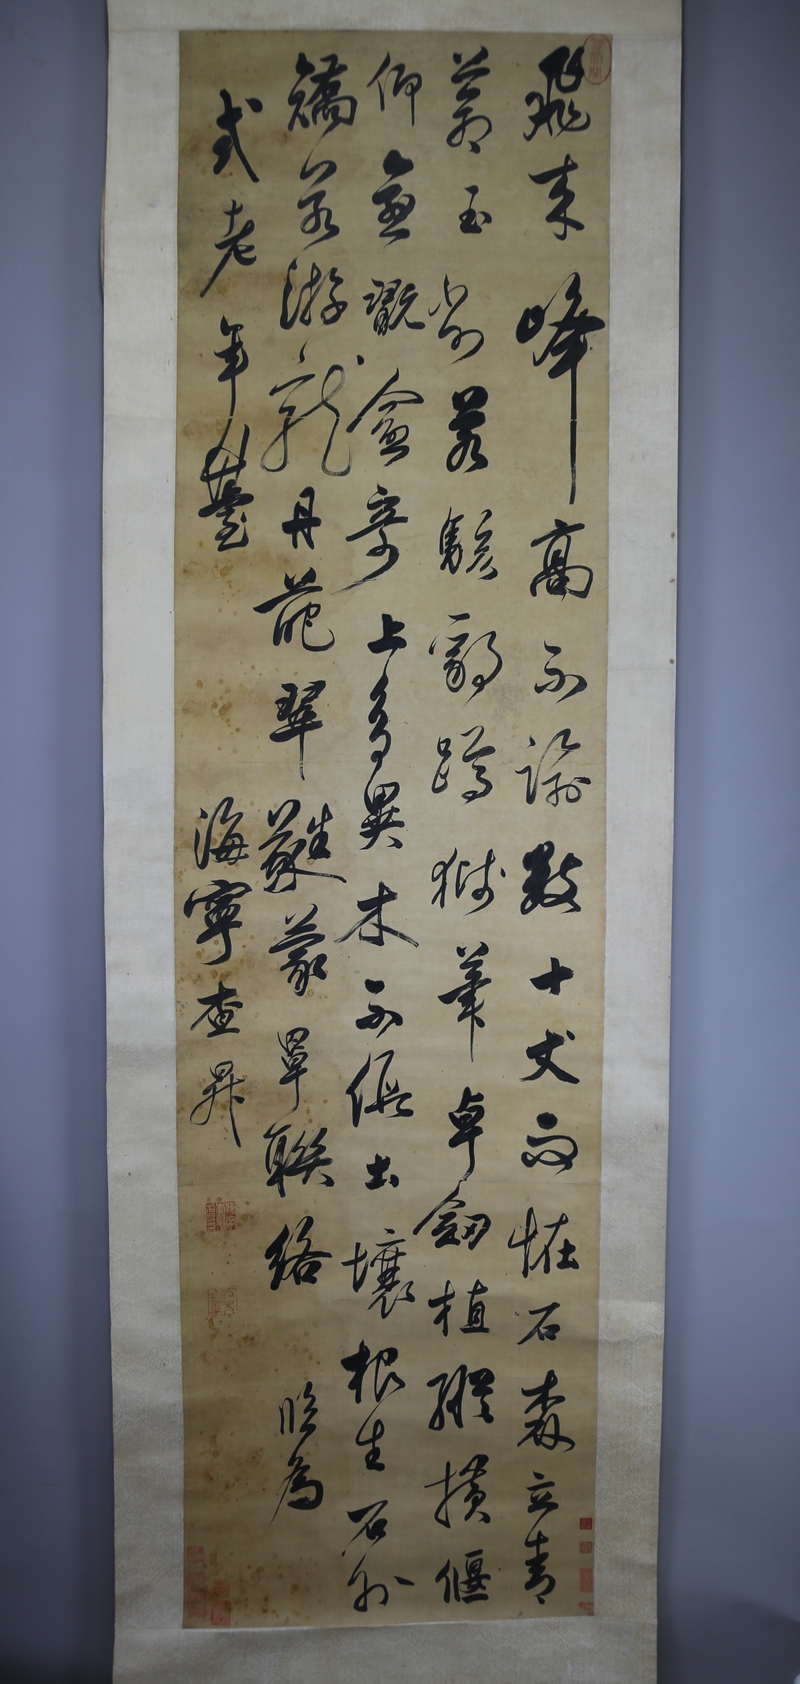 飛來峰高不踰數十丈而怪石森立青
蒼玉削若駭豹蹲獅筆卓劒植縱橫偃
仰愈翫愈奇上多異木不假土壤根生石外
矯若游龍丹葩翠蕤蒙罩聯絡 臨為
式老年臺 海寧查昇